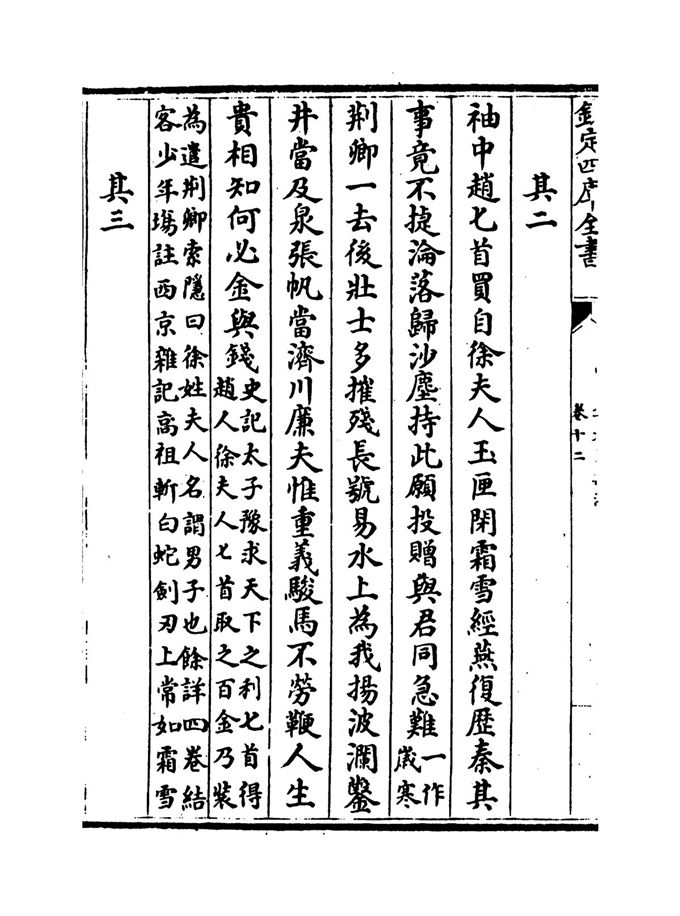 欽定四庫全書
卷十二
其二
袖中趙匕首買自徐夫人玉匣閉霜雪經燕復歷秦其
事竟不捷淪落歸沙塵持此願投贈與君同急難一作歲寒
荆卿一去後壯士多摧殘長號易水上為我揚波瀾鑿
井當及泉張帆當濟川廉夫惟重義駿馬不勞鞭人生
貴相知何必金與錢史記太子豫求天下之利匕首得
趙人徐夫人匕首取之百金乃裝
為遣荆卿索隱曰徐姓夫人名謂男子也餘詳四卷結
客少年塲註西京雜記高祖斬白蛇劍刃上常如霜雪
其三